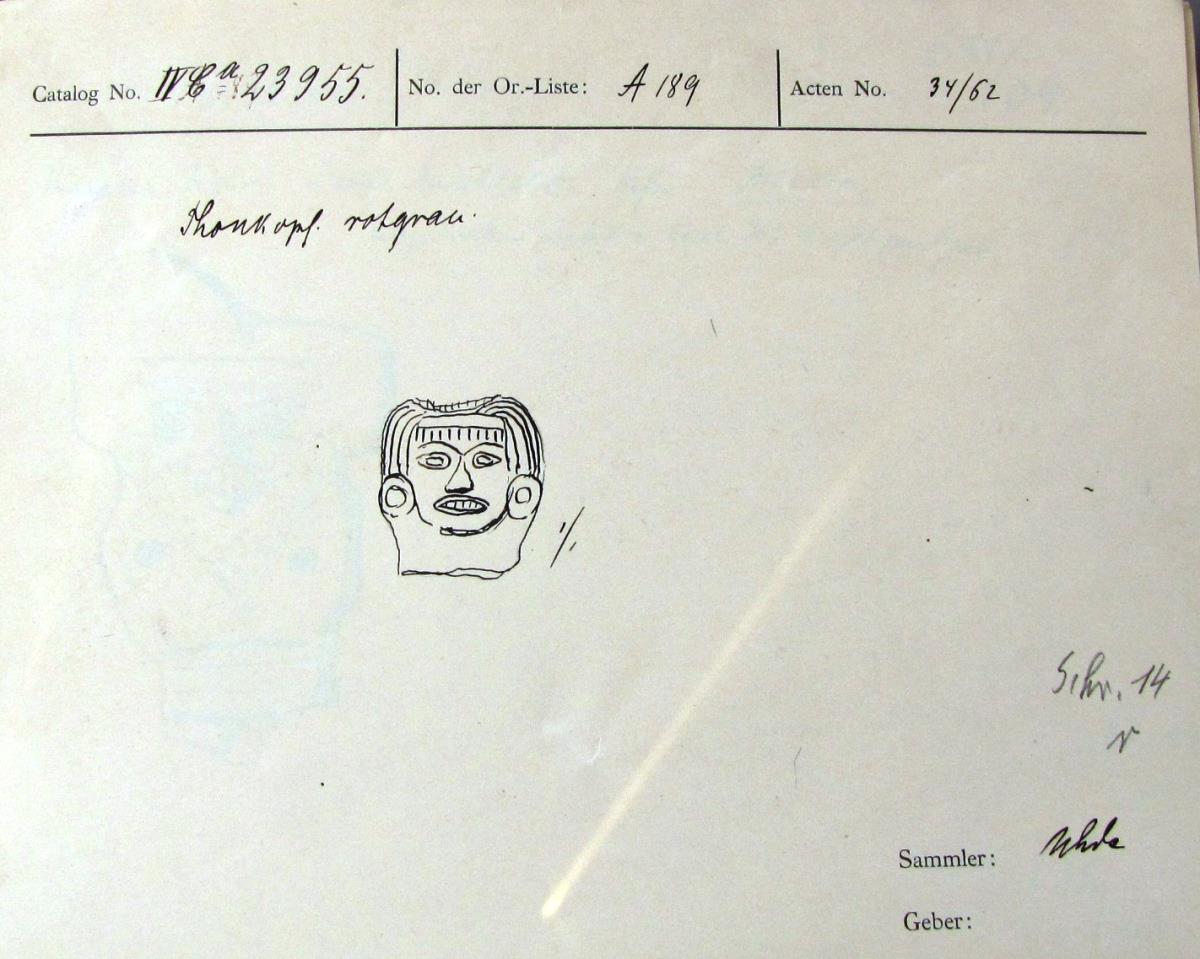 Catalog No. IV Ca 23955. No. der Or.-Liste: A 189 Acten No. 34/62
Thonkopf. rotgrau.
1/1
Schr. 14
r
Sammler: Uhde
Geber: